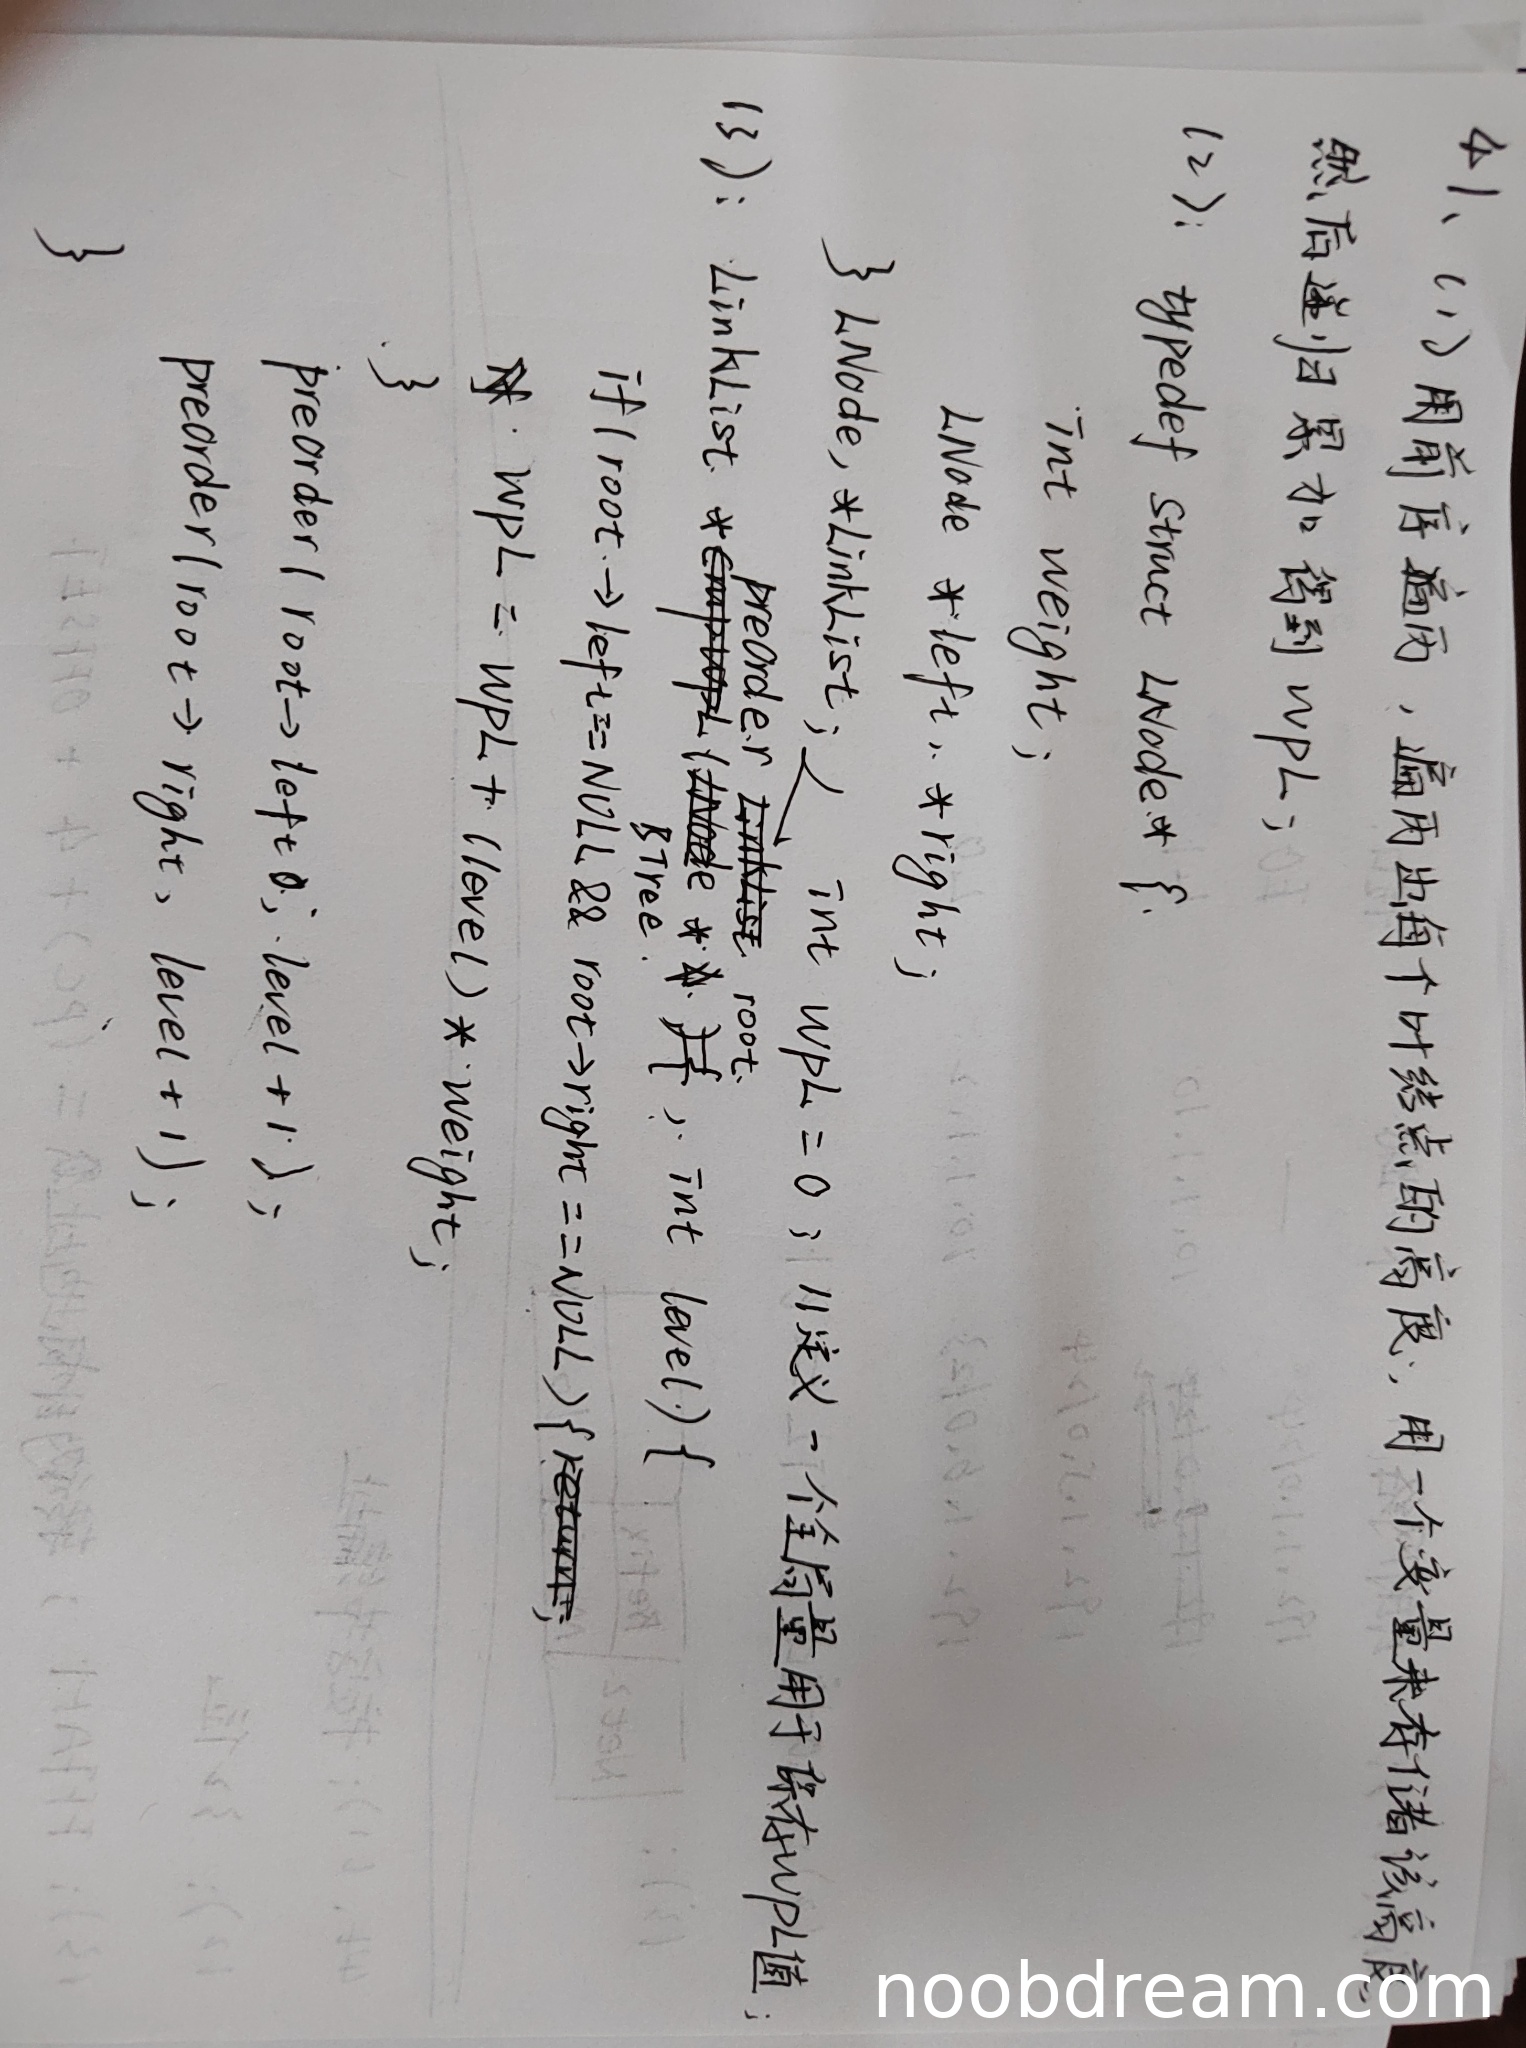 41、(1)用前序遍历，遍历出每个叶结点的高度，用一个变量来存储该高度，
然后递归累加得到WPL；
(2)：typedef struct LNode* {
int weight;
LNode *left, *right;
} LNode, *LinkList;
int WPL = 0; //定义一个全局量用于保存WPL值;
(3)：LinkList * preorder (BTree * root, int level) {
if(root→left==NULL && root→right==NULL){
WPL = WPL + (level) * weight;
}
preorder(root→left, level+1);
preorder(root→right, level+1);
}
noobdream.com